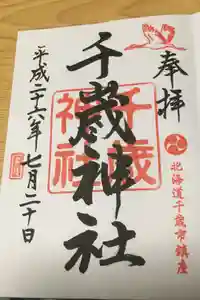 奉拝
北海道千歳市鎮座
千歳神社
千歳
神社
平成二十六年七月二十日